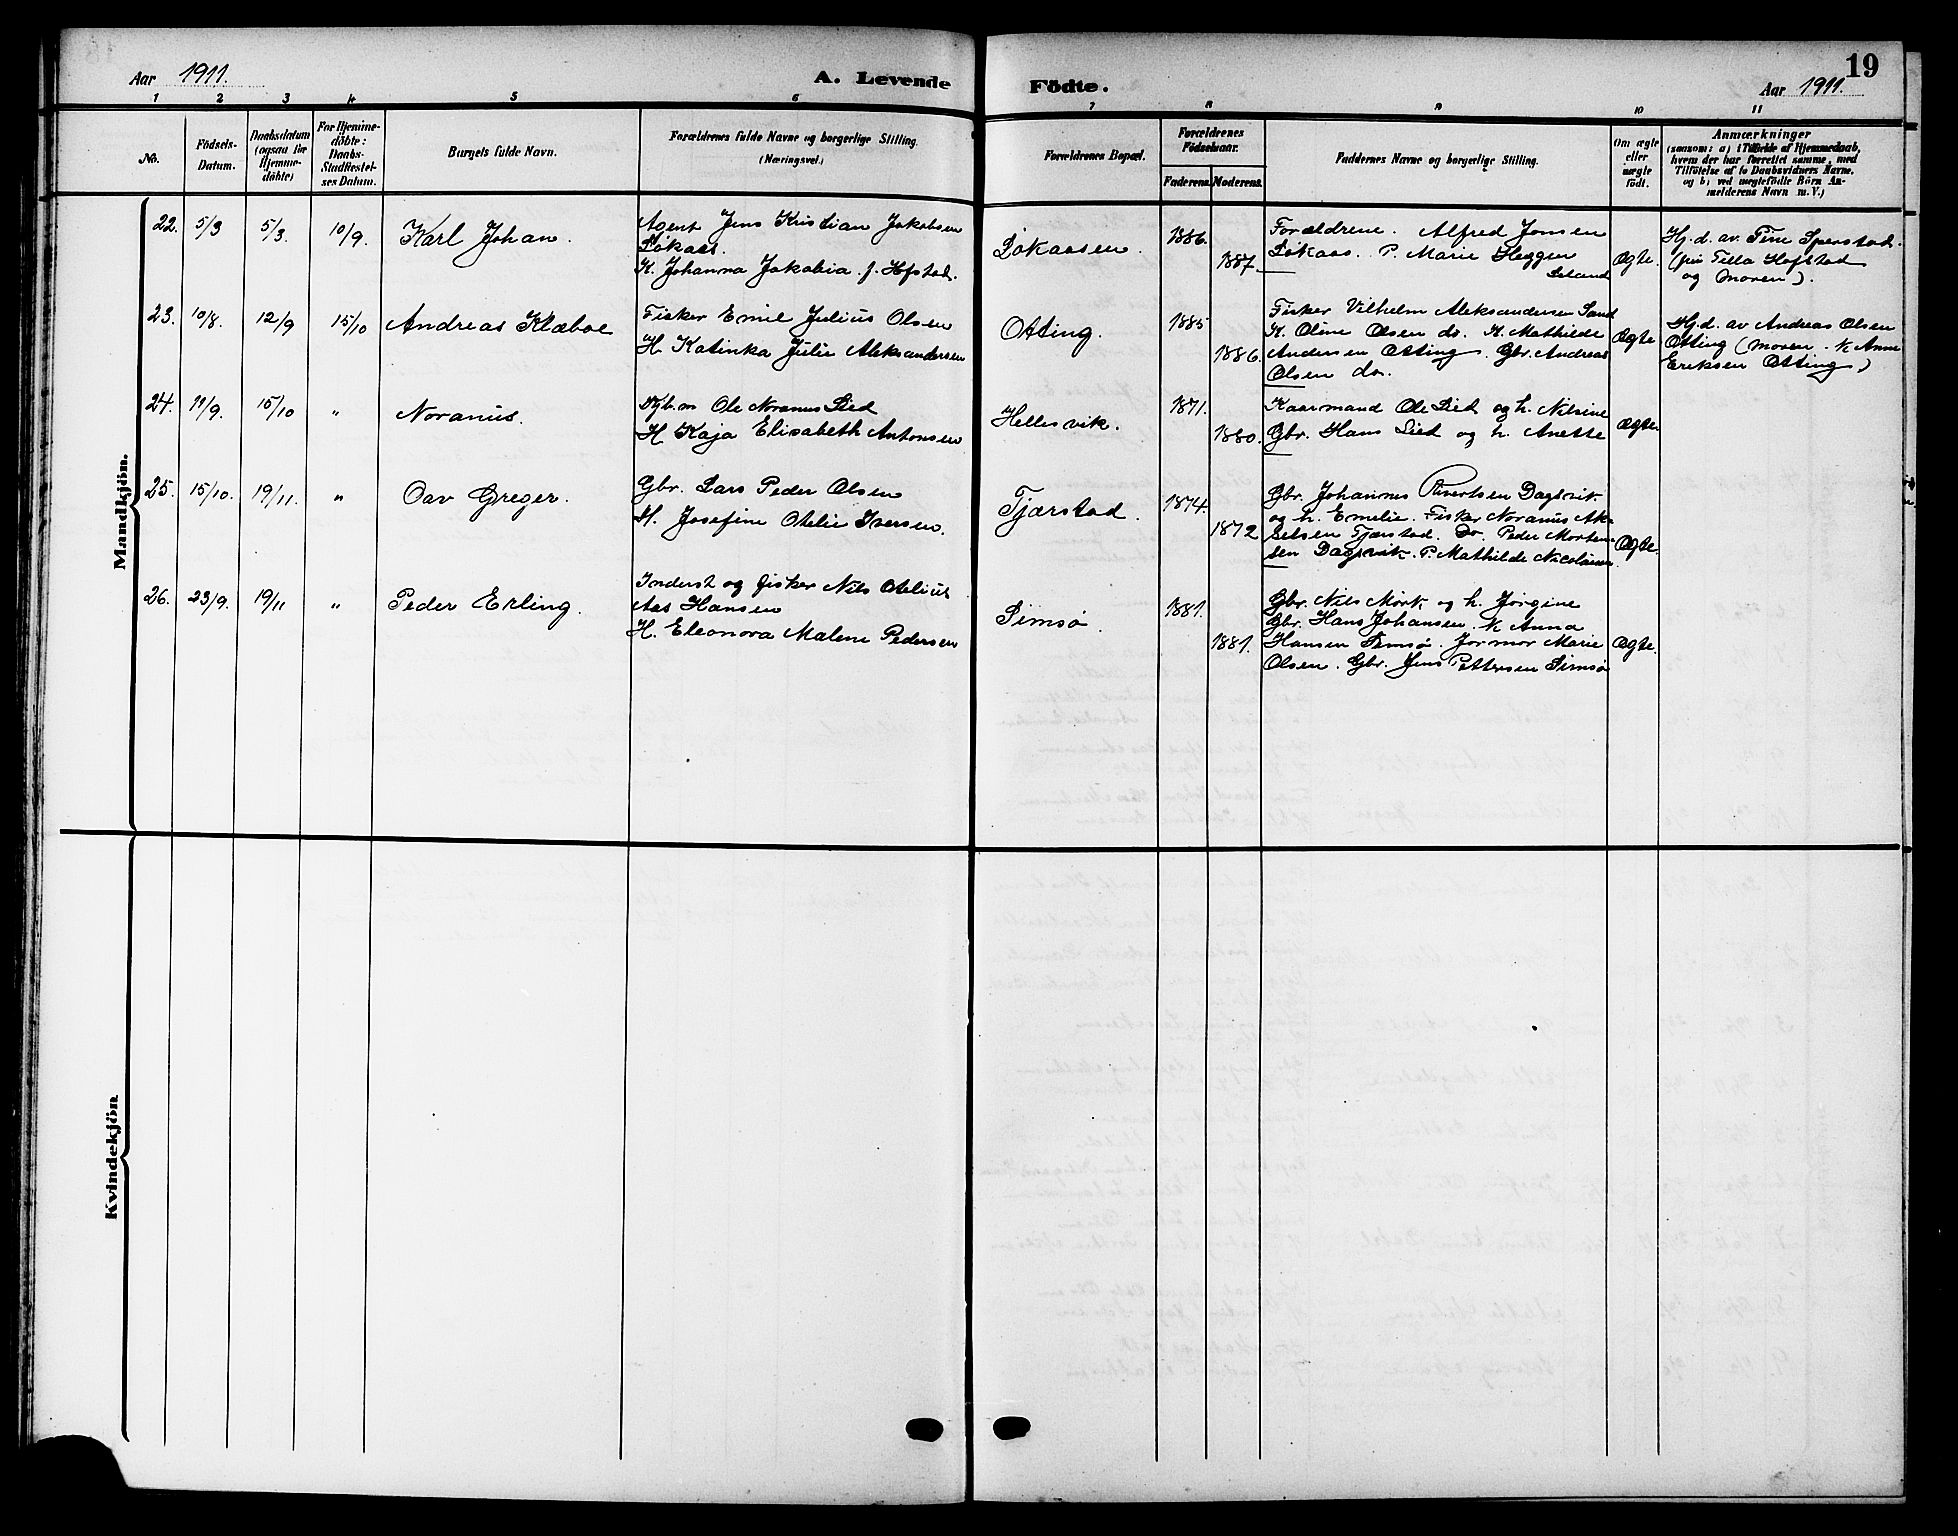 Aar 1911.
A. Levende
Födte.
19
Aar 1911.
1 2 3 4 5 6 7 8 9 10 11
No.
Födsels-
Datum.
Daabsdatum
(ogsaa for
Hjemme-
döbte)
For Hjemme-
döbte:
Daabs-
Stadfæstel-
ses Datum.
Barnets fulde Navn.
Forældrenes fulde Navne og borgerlige Stilling.
(Næringsvei.)
Forældrenes Bopæl.
Forældrenes
Födselsaar.
Faderens. Moderens.
Faddernes Navne og borgerlige Stilling.
Om ægte
eller
uægte
födt.
Anmærkninger
(saasom: a) i Tilfælde af Hjemmedaab,
hvem der har forrettet samme, med
Tilföielse af to Daabsvidners Navne,
og b) ved uægtefödte Börn An-
melderens Navn m. V.)
Mandkjön.
22. 5/3 5/3. 10/9. Karl Johan.
Agent Jens Kristian Jakobsen
Løkaas.
K. Johanna Jakobia f. Hofstad.
Løkaasen.
1886.
1887.
Forældrene. Alfred Jonsen
Løkaas. P. Marie Heggen
Leland
Ægte.
Hj.d. av Tine Sperstad.
(pia Tella Hofstad
og moren).
23. 10/8. 12/9 15/10 Andreas Klæboe
Fisker Emil Julius Olsen
H Katinka Julie Aleksandersen
Otting.
1885
1886.
Fisker Vilhelm Aleksandersen Sand
K. Oline Olsen do. K. Mathilde
Andersen Otting. Gbr. Andreas
Olsen do.
Ægte
Hj.d. av Andreas Olsen
Otting (moren. K Anne
Eriksen Otting)
24. 11/9. 15/10 " Noranus.
Ole Noranus Lied
H Kaja Elisabeth Antonsen
Hellesvik.
1871.
1880.
Kaarmand Ole Lied og h. Nilsine
Gbr. Hans Lied og h. Anette
Ægte
25. 15/10. 19/11. " Oav Greger.
Gbr. Lars Peder Olsen
H. Josefine Otelie Iversen.
Tjærstad.
1874.
1872
Gbr. Johannes Sivertsen Dagsvik
og h. Emelie. Fisker Noranus Ak-
selsen Tjærstad. Do. Peder Morten-
sen Dagsvik. P. Mathilde Nicolaisen
Ægte.
26. 23/9. 19/11 " Peder Erling.
Inderst og fisker Nils Otelius
Aas Hansen
H. Eleonora Malene Pedersen
Simsø.
1881.
1881.
Gbr. Nils Mørk og h. Jørgine
Gbr. Hans Johansen. K Anna
Hansen Simsø. Jormor Marie
Olsen. Gbr. Jens Pettersen Simsø
Ægte.
Kvindekjön